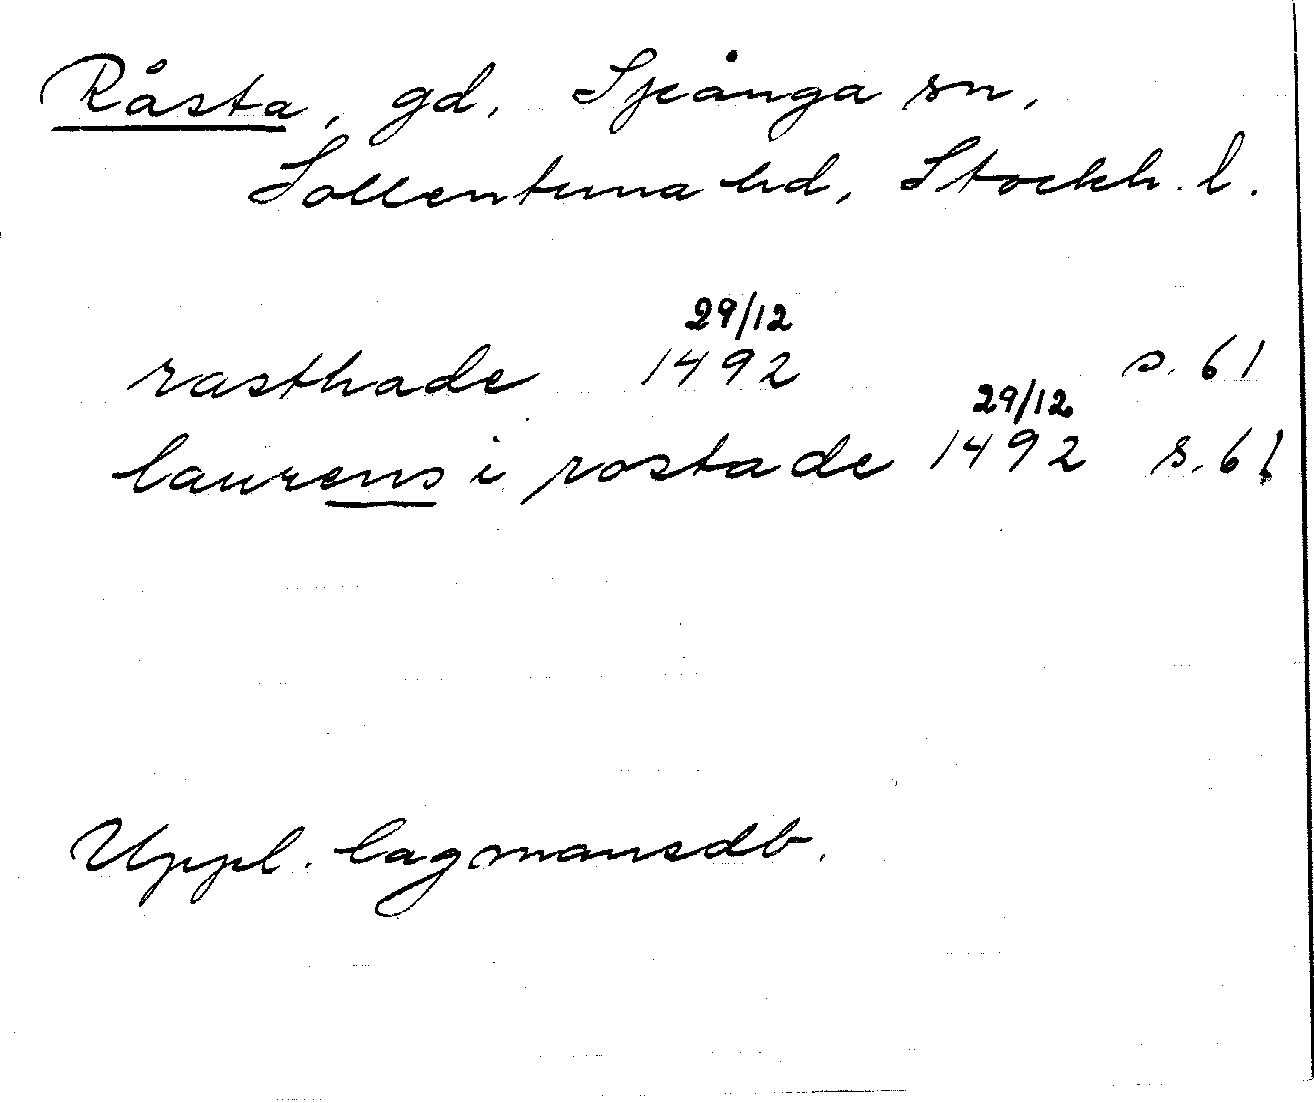 Råsta, gd, Spånga sn,
Sollentuna hd, Stockh. l.
rasthade 29/12 1492 s. 61
laurens i rostade 29/12 1492 s. 61
Uppl. lagmansdb.